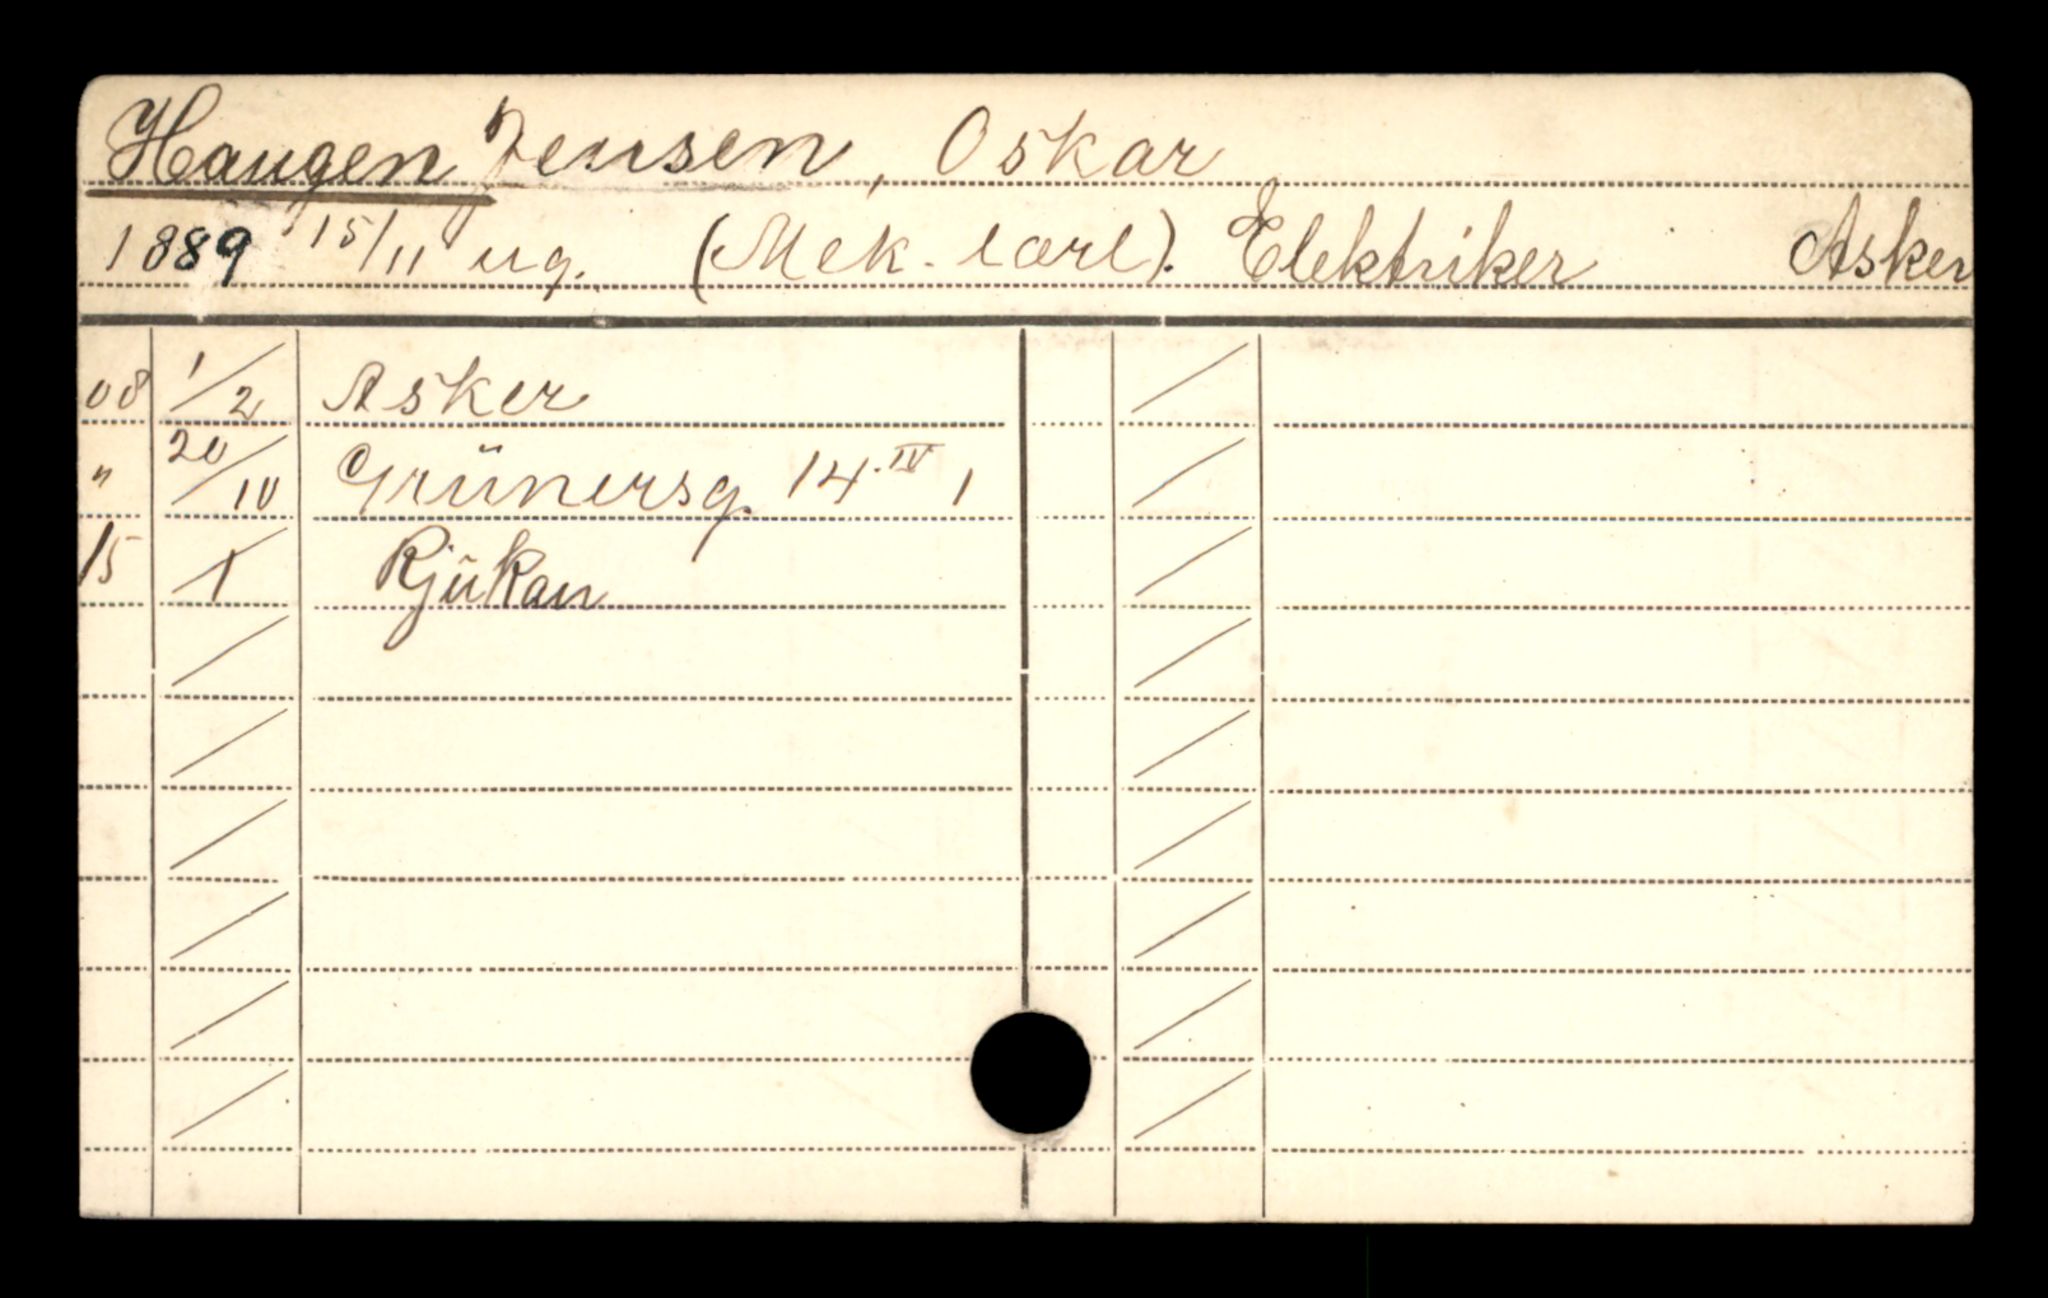 Haugen Jensen, Oskar
1889 15/11 ug. (Mek. lærl). Elektriker Asker
08 1/2 Asker
" 20/10 Grünersg. 14.IV 1
15 /1 Rjukan